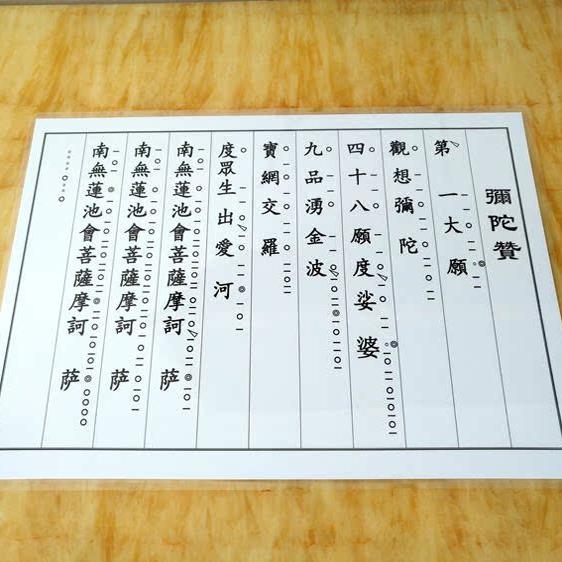 彌陀贊
第一大願
觀想彌陀
四十八願度娑婆
九品湧金波
寶網交羅
度眾生出愛河
南無蓮池會菩薩摩訶薩
南無蓮池會菩薩摩訶薩
南無蓮池會菩薩摩訶薩